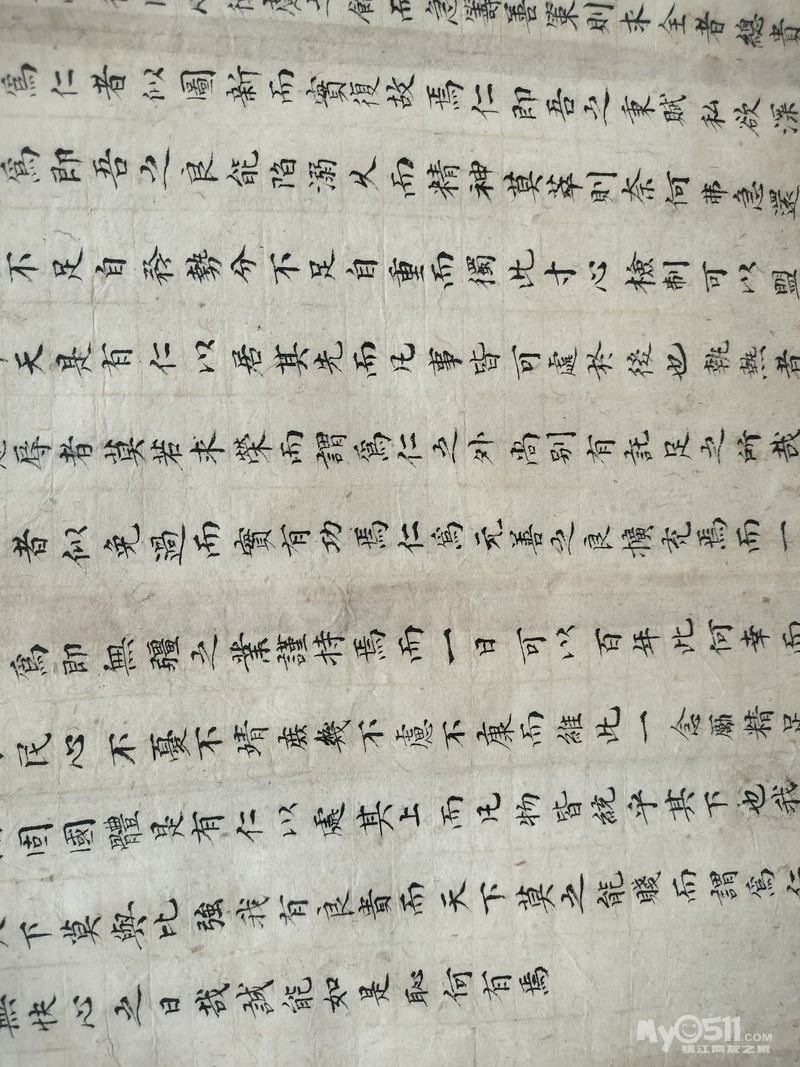 而急籌善策則求全者總貴
為仁者似圖新而實復故焉仁即吾之秉賦私欲深
為即吾之良能陷溺久而精神莫萃則奈何弗急還
不足自矜勢分不足自重而獨此寸心檢制可以盟
天是有仁以居其先而凡事皆可處於後也執熱者
辱者莫若求榮而謂為仁之外尚別有託足之所哉
者似免過而實有功焉仁為元善之良擴充焉而一
為即無疆之業謹持焉而一日可以百年此何幸而
民心不憂不靖庶幾不慮不康而維此一念厲精足
固國體是有仁以處其上而凡物皆統乎其下也我
下莫與比強我有良貴而天下莫之能賤而謂為仁
無快心之日哉誠能如是恥何有焉
My0511.COM
镇江网友之家